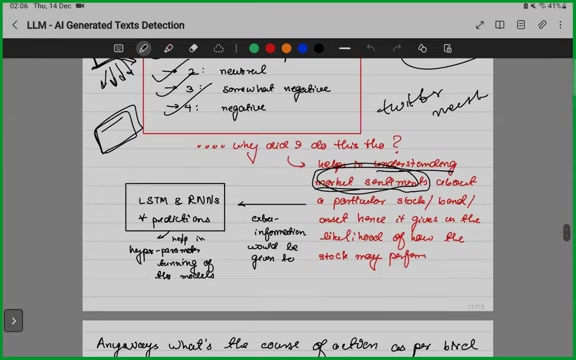 02:06 Thu, 14 Dec
41%
LLM - AI Generated Texts Detection
2: neutral
3: somewhat negative
4: negative
twitter
.... why did I do this tho ?
helps in understanding
market sentiments about
a particular stock/bond/
asset hence it gives us the
likelihood of how the
stock may perform
LSTM & RNNs
* predictions
extra-
information
would be
given to
help in
hyper-parameter
tunning of
the models
11/19
Anyways what's the course of action as per bird